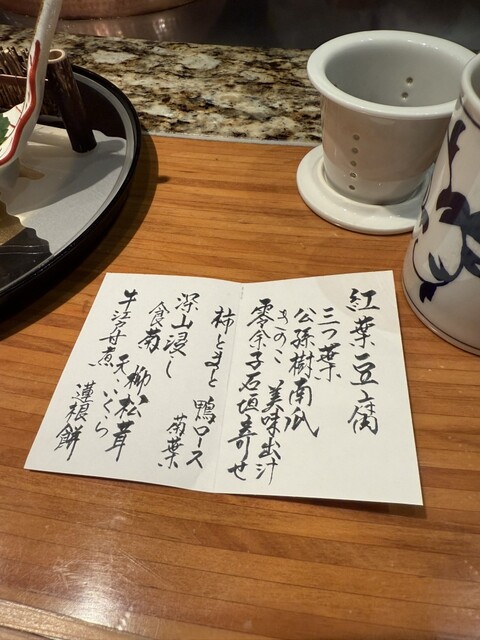 紅葉豆腐
三つ葉
公孫樹南瓜
きのこ 美味出汁
零余子石垣寄せ
柿とまと 鴨ロース
菊葉
深山浸し
食菊 柳松茸
天、いくら
牛江戸舟煮 蓮根餅